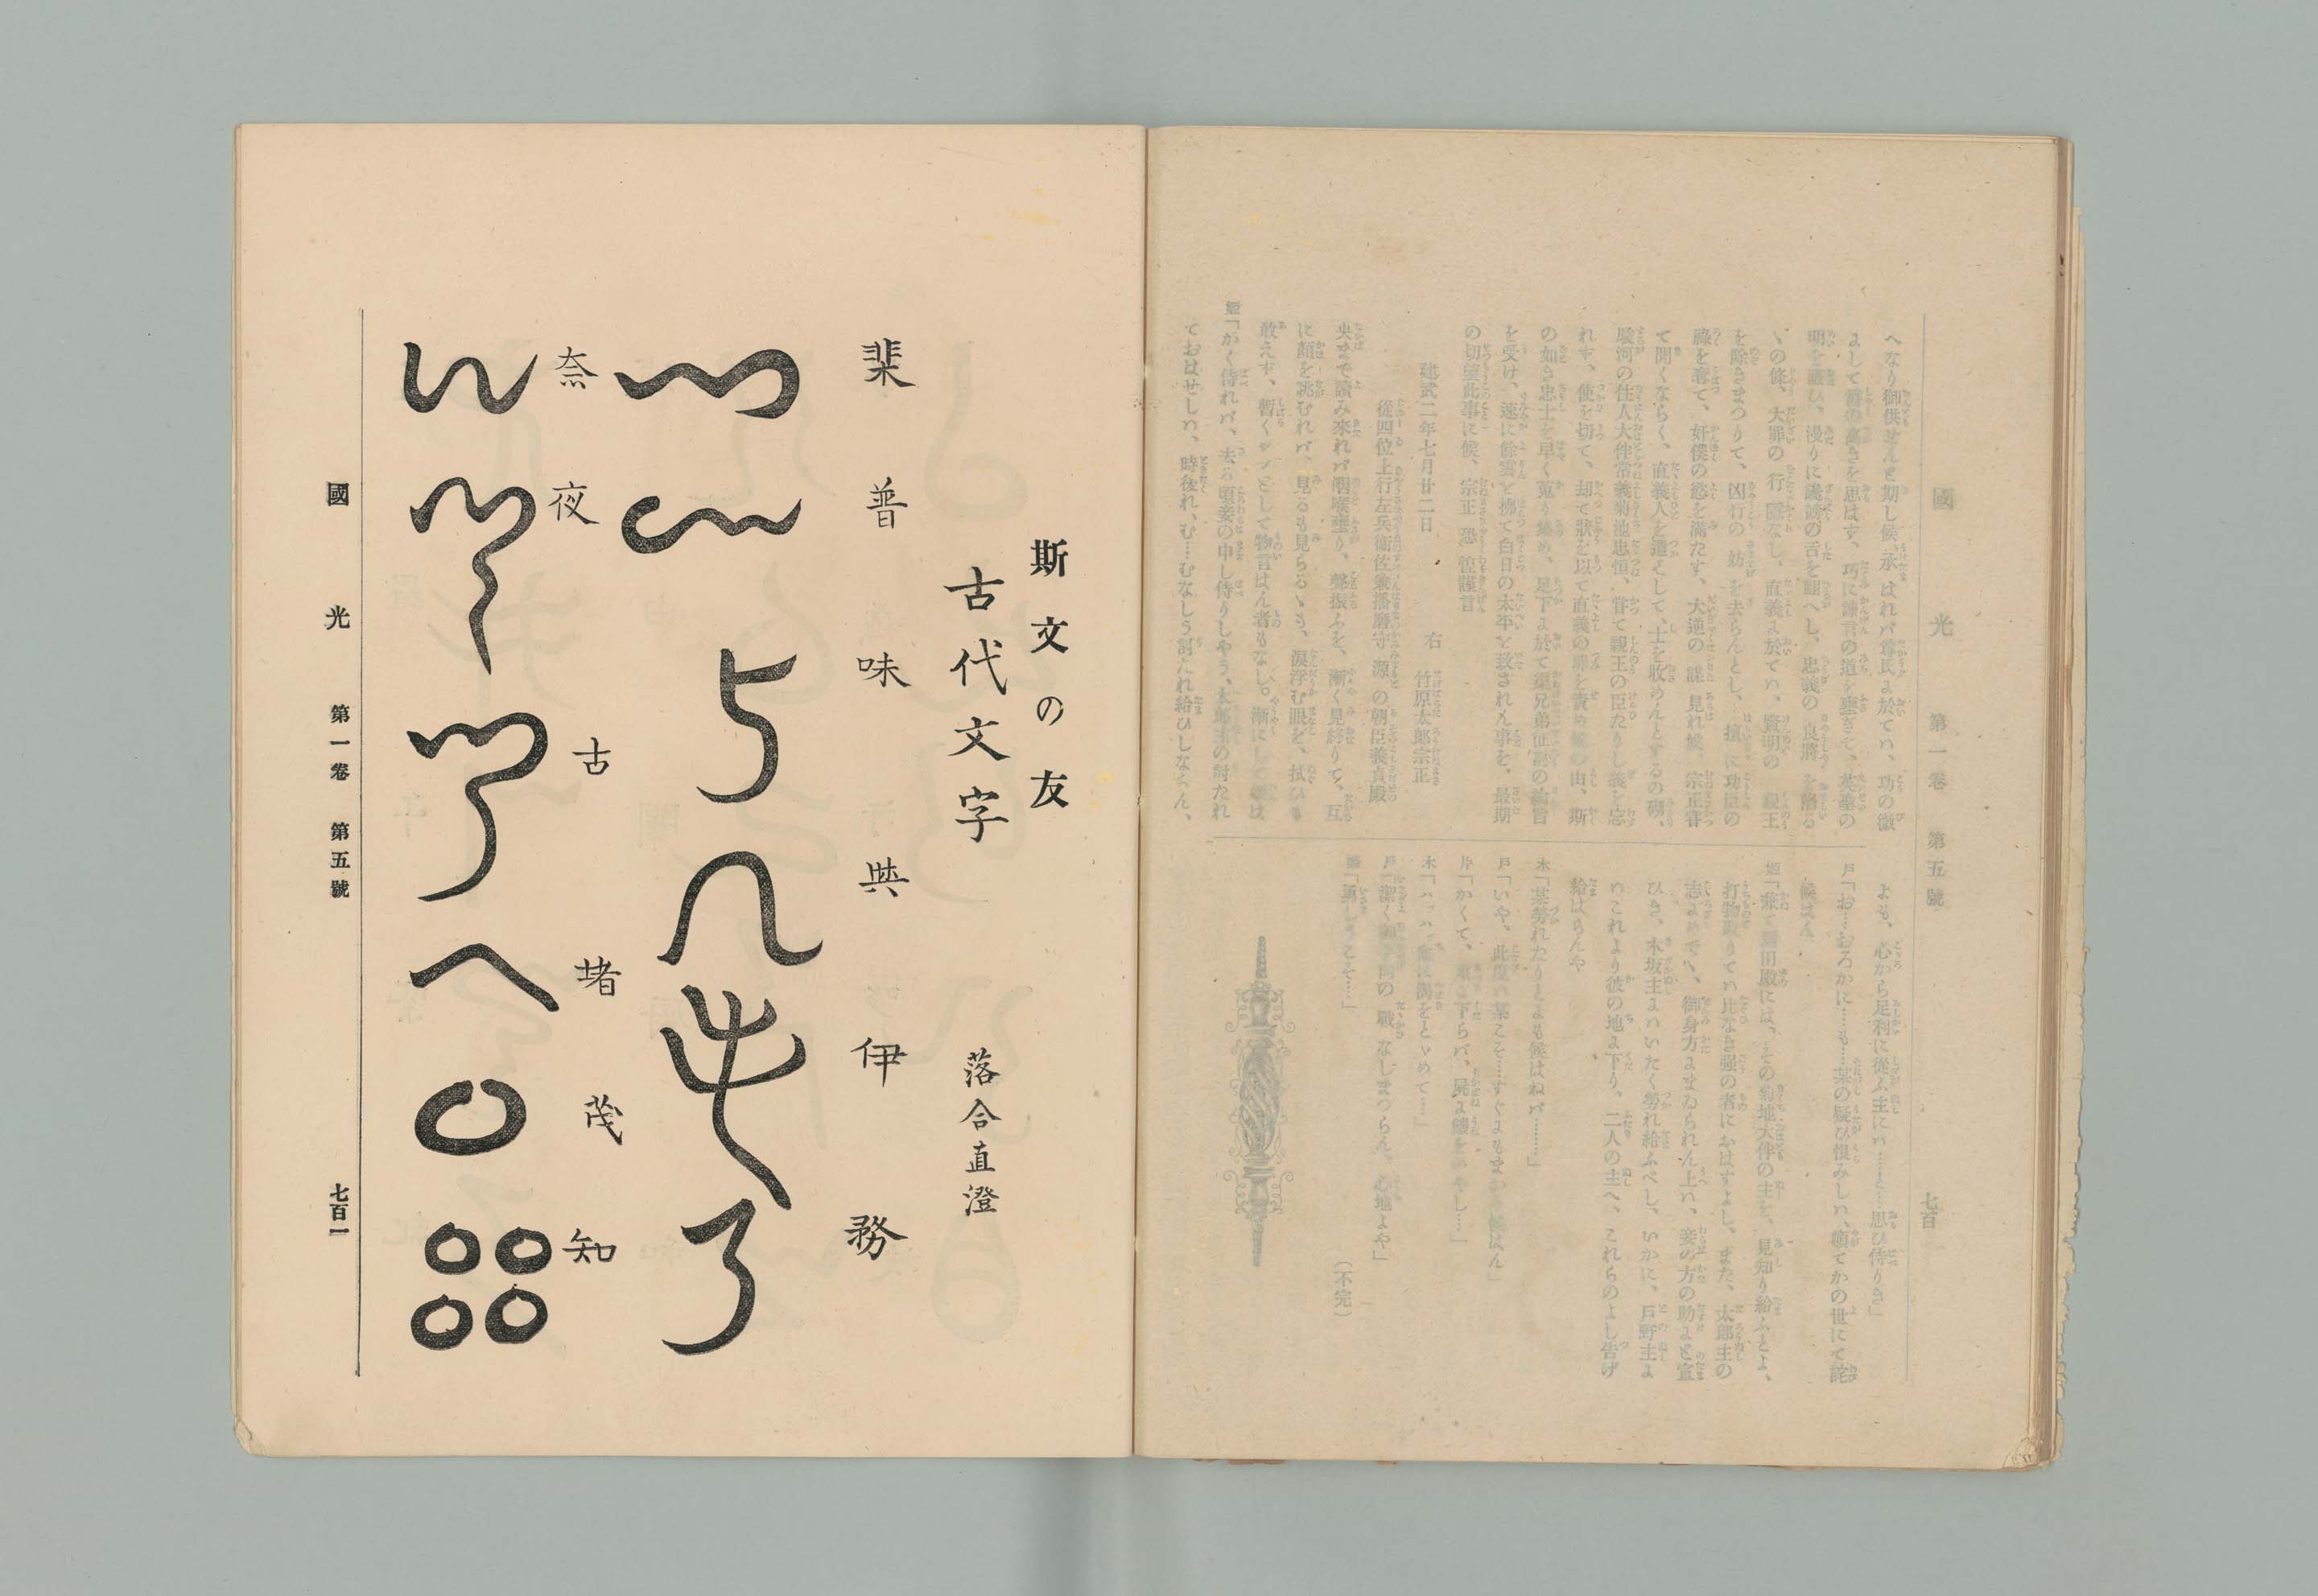 國光 第一卷 第五號 七百
へなり御供せんと期し候、承はれバ尊氏よ於てハ、功の微
よして爵の高きを思はす、巧に讒言の道を塞ぎて、英雄の
明を、漫りに讒謗の舌を翻へし、忠義の良將を陷る
ゝの條、大罪の行隱なし、直義よ於てハ、賢明の親王
を除きまつりて、凶行の妨を去らんとし、擅に功臣の
祿を奪て、奸僕の慾を滿たす、大逆の謀見れ候、宗正
て聞くならく、直義人を遣として、士を收めんとするの砌、
駿河の住人大伴常義菊池忠恒、甞て親王の臣たりし義を忘
れす、使を切て、却て狀を以て直義の罪を責めの由、斯
の如き忠士を早く蒐り集め、足下よ於て渠兄弟征討の綸旨
を受け、速に餘雲を拂て白日の太平を致されん事を、最期
の切望此事に候、宗正恐惶謹言
建武二年七月廿二日
右 竹原太郎宗正
從四位上行左兵衞佐兼播磨守源の朝臣義貞殿
央まで讀み來れバ咽喉塞り、聲振ふを、漸く見終りて、互
に顏を眺むれバ、見るも見らるゝも、涙浮む眼を、拭ひも
敢えす、暫くとして物言はん者もなし。漸にして姬は
姬「かく侍れバ、去る頃妾の申し侍りしやう、太郎主の討たれ
ておはせしハ、時後れ、む…むなしう討たれ給ひしなん、
よも、心から足利に從ふ主にハ……と…思ひ侍りき」
戶「お…おろかに……も……某の疑ひ恨みしハ、頓てかの世にて詫
候はん
姬「兼て新田殿には、その菊地大伴の主を、見知り給ふとよ、
打物取りてハ比なき强の者におはすよし、また、太郎主の
志よめでゝ、御身方よまゐられん上ハ、妾の方の助よと宣
ひき、木坂主よハいたく勞れ給ふべし、いかに、戶野主よ
ハこれより彼の地よ下り、二人の主へ、これらのよし告げ
給はらんや
木「某勞れたりとよも候はねバ………」
戶「いや、此度ハ某こそ……すぐよもまかり候はん」
片「かくて、下らバ、屍よ憾をいやし…」
木「ハッハッをとゞめて…」
戶「潔くの戰なしまつらん、心地よや」
姬「勇しうこそ……」
(不完)
斯文の友
古代文字
落合直澄
棐 普 味 與 伊 務
奈 夜 古 堵 茂 知
國光 第一卷 第五號 七百一